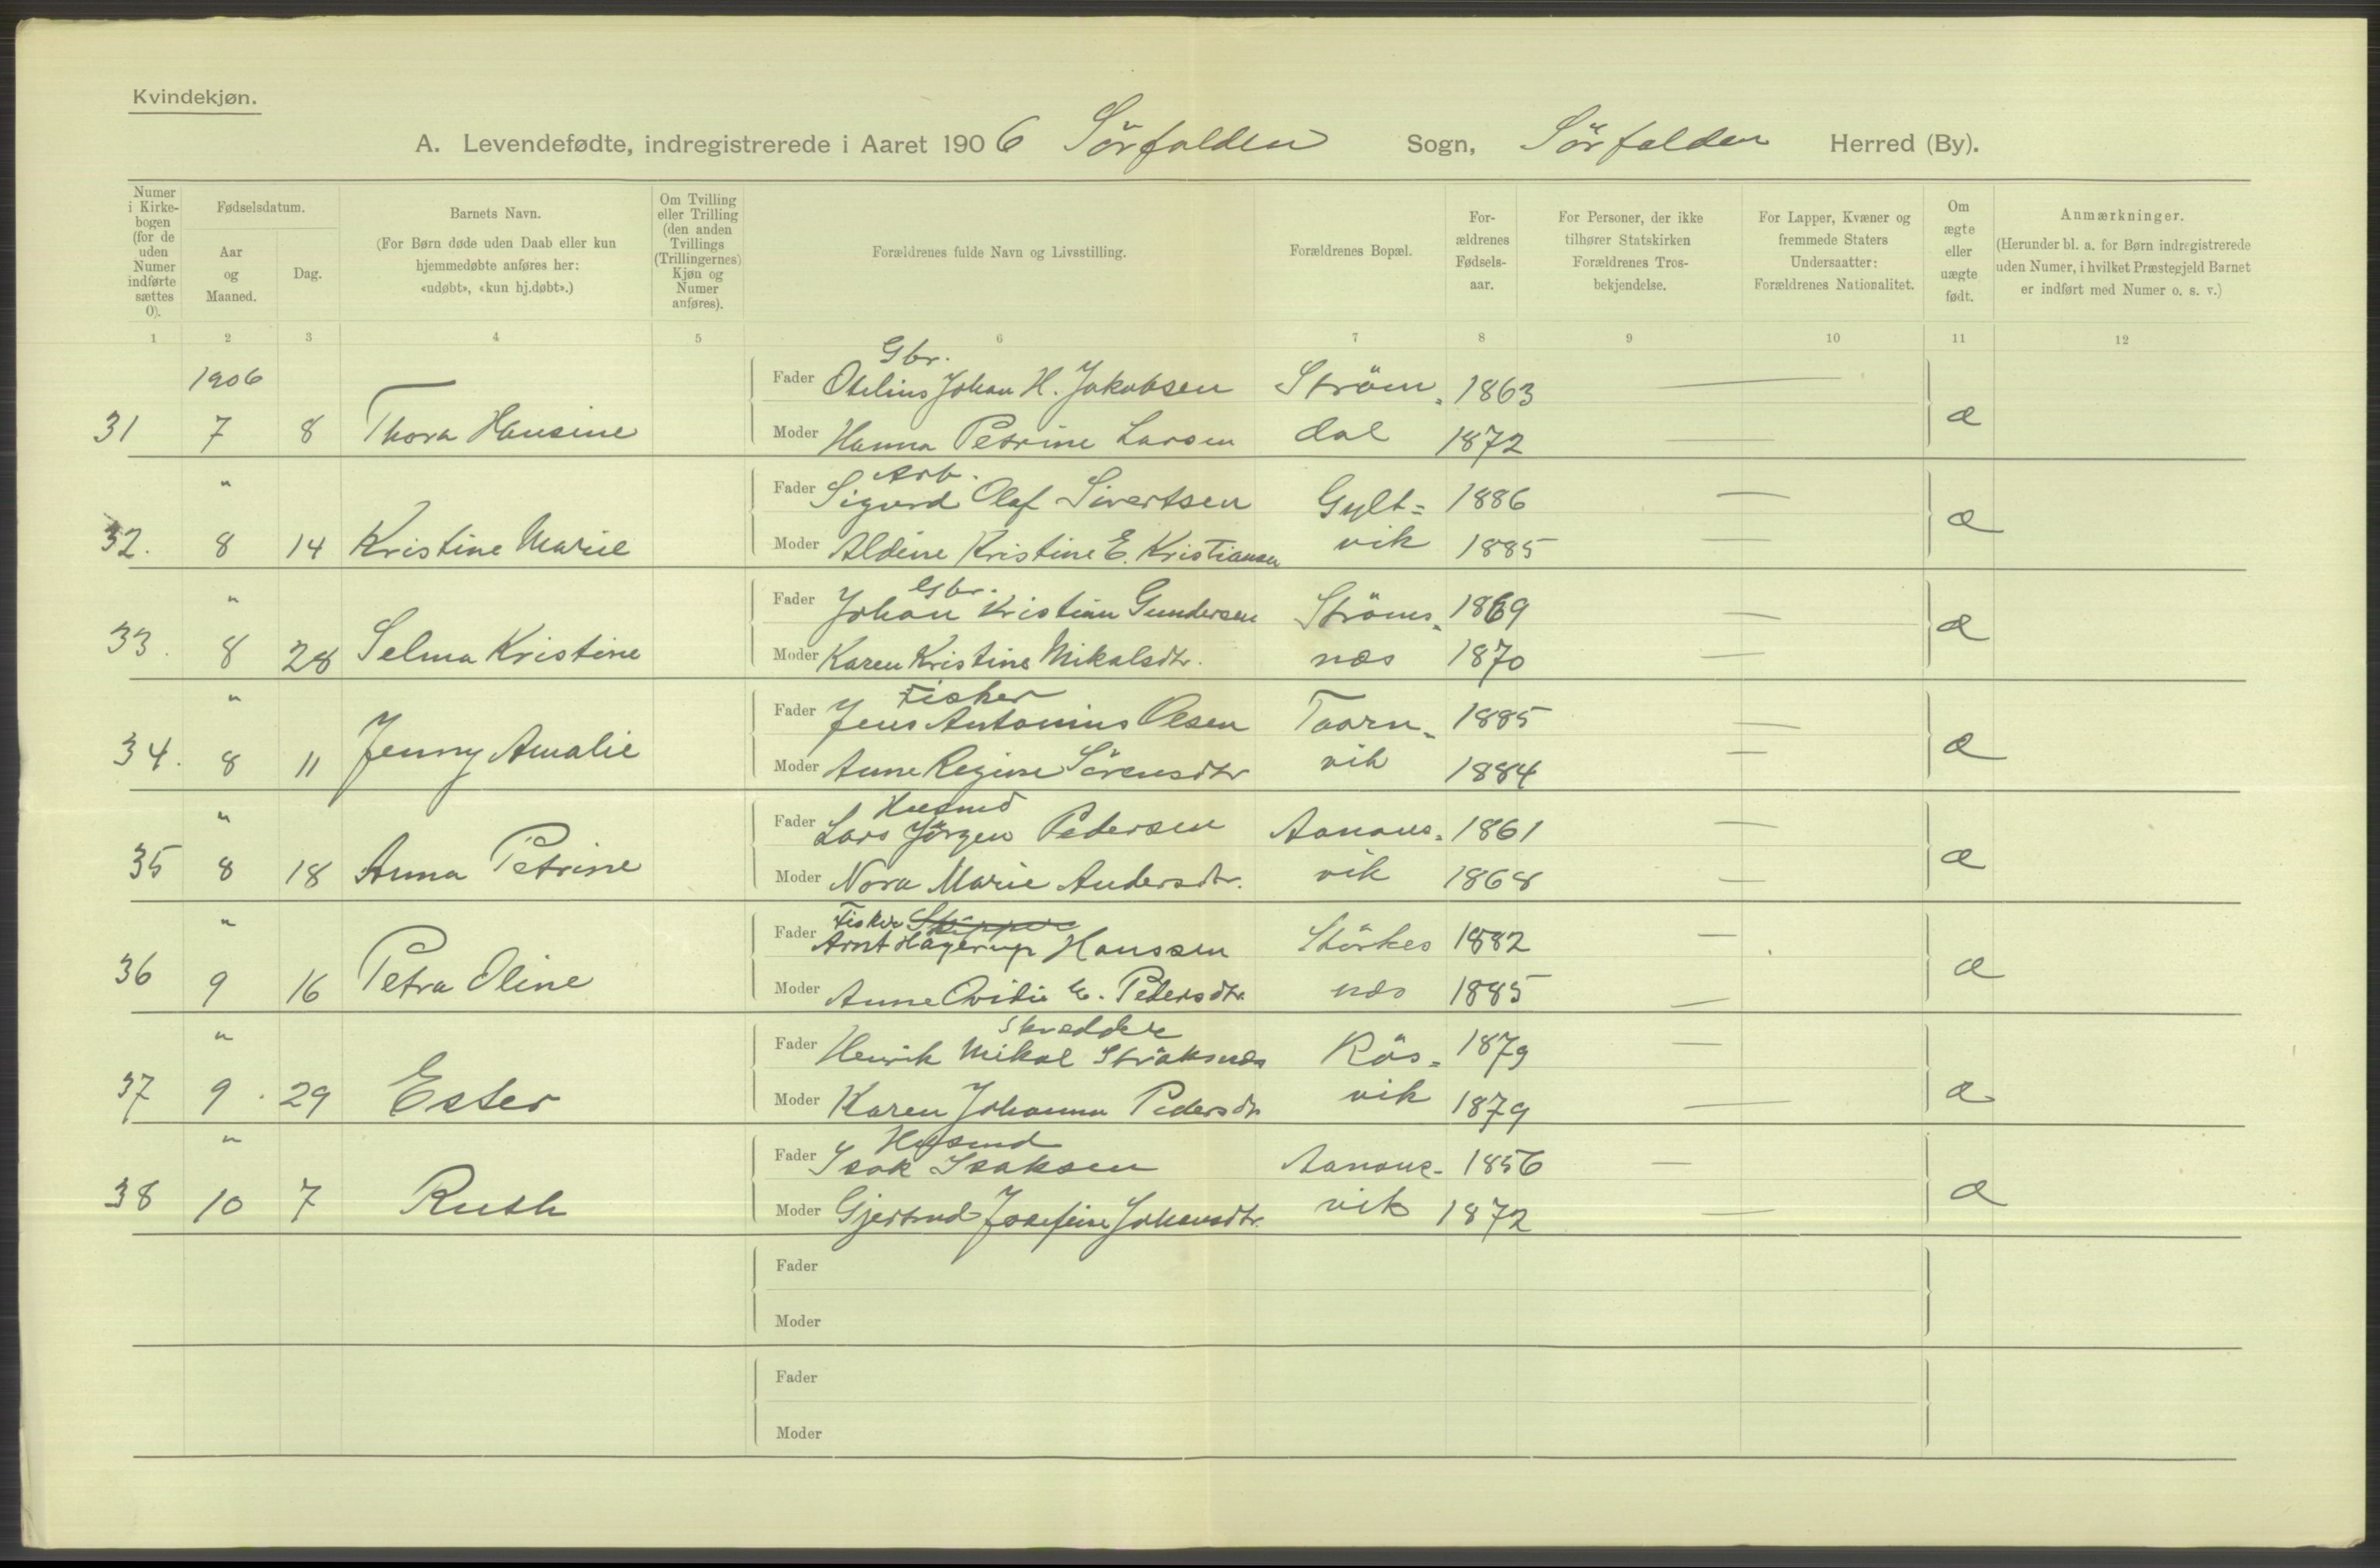 Kvindekjøn.
A. Levendefødte, indregistrerede i Aaret 1906 Sörfolden Sogn, Sörfolden Herred (By).
Numer i Kirkebogen (for de uden Numer indførte sættes 0).
Fødselsdatum.
Aar og Maaned.
Dag.
Barnets Navn.
(For Børn døde uden Daab eller kun hjemmedøbte anføres her: «udøbt», «kun hj.døbt».)
Om Tvilling eller Trilling (den anden Tvillings (Trillingernes) Kjøn og Numer anføres).
Forældrenes fulde Navn og Livsstilling.
Forældrenes Bopæl.
Forældrenes Fødselsaar.
For Personer, der ikke tilhører Statskirken Forældrenes Trosbekjendelse.
For Lapper, Kvæner og fremmede Staters Undersaatter: Forældrenes Nationalitet.
Om ægte eller uægte født.
Anmærkninger.
(Herunder bl. a. for Børn indregistrerede uden Numer, i hvilket Præstegjeld Barnet er indført med Numer o. s. v.)
1 2 3 4 5 6 7 8 9 10 11 12
Gbr.
1906 Fader Otelius Johan H. Jakobsen Ström- 1863 —
31 7 8 Thora Hansine Moder Hanna Petrine Larsen dal 1872 — æ
Arb.
" Fader Sigurd Olaf Sivertsen Gylt= 1886 —
32. 8 14 Kristine Marie Moder Aldine Kristine E. Kristiansen vik 1885 — æ
Gbr.
" Fader Johan Kristian Gundersen Ströms- 1869 —
33. 8 28 Selma Kristine Moder Karen Kristine Mikalsdtr. næs 1870 — æ
Fisker
" Fader Jens Antonius Olsen Taarn- 1885 —
34. 8 11 Jenny Amalie Moder Anne Regine Sörensdtr vik 1884 — æ
Husmd
" Fader Lars Jörgen Pedersen Aanons- 1861 —
35 8 18 Anna Petrine Moder Nora Marie Andersdtr. vik 1868 — æ
Fisker Skipper
" Fader Arnt Hagerup Hanssen Störkes 1882 —
36 9 16 Petra Oline Moder Anne Ovidie E. Pedersdtr. næs 1885 — æ
Skrædder
" Fader Henrik Mikal Stråksnæs Rös- 1879 —
37 9 29 Ester Moder Karen Johanna Pedersdtr vik 1879 — æ
Husmd
" Fader Isak Isaksen Aanons- 1856 —
38 10 7 Ruth Moder Gjertrud Josefine Johansdtr. vik 1872 — æ
Fader
Moder
Fader
Moder